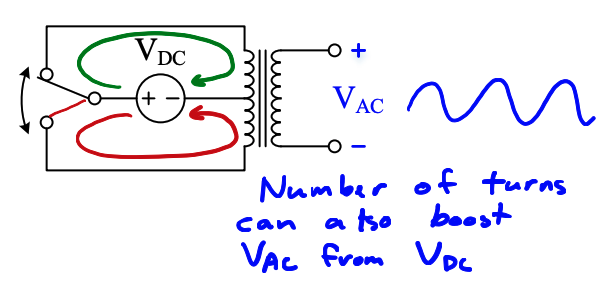 V_DC
+ −
+
V_AC
−
Number of turns
can also boost
V_AC from V_DC